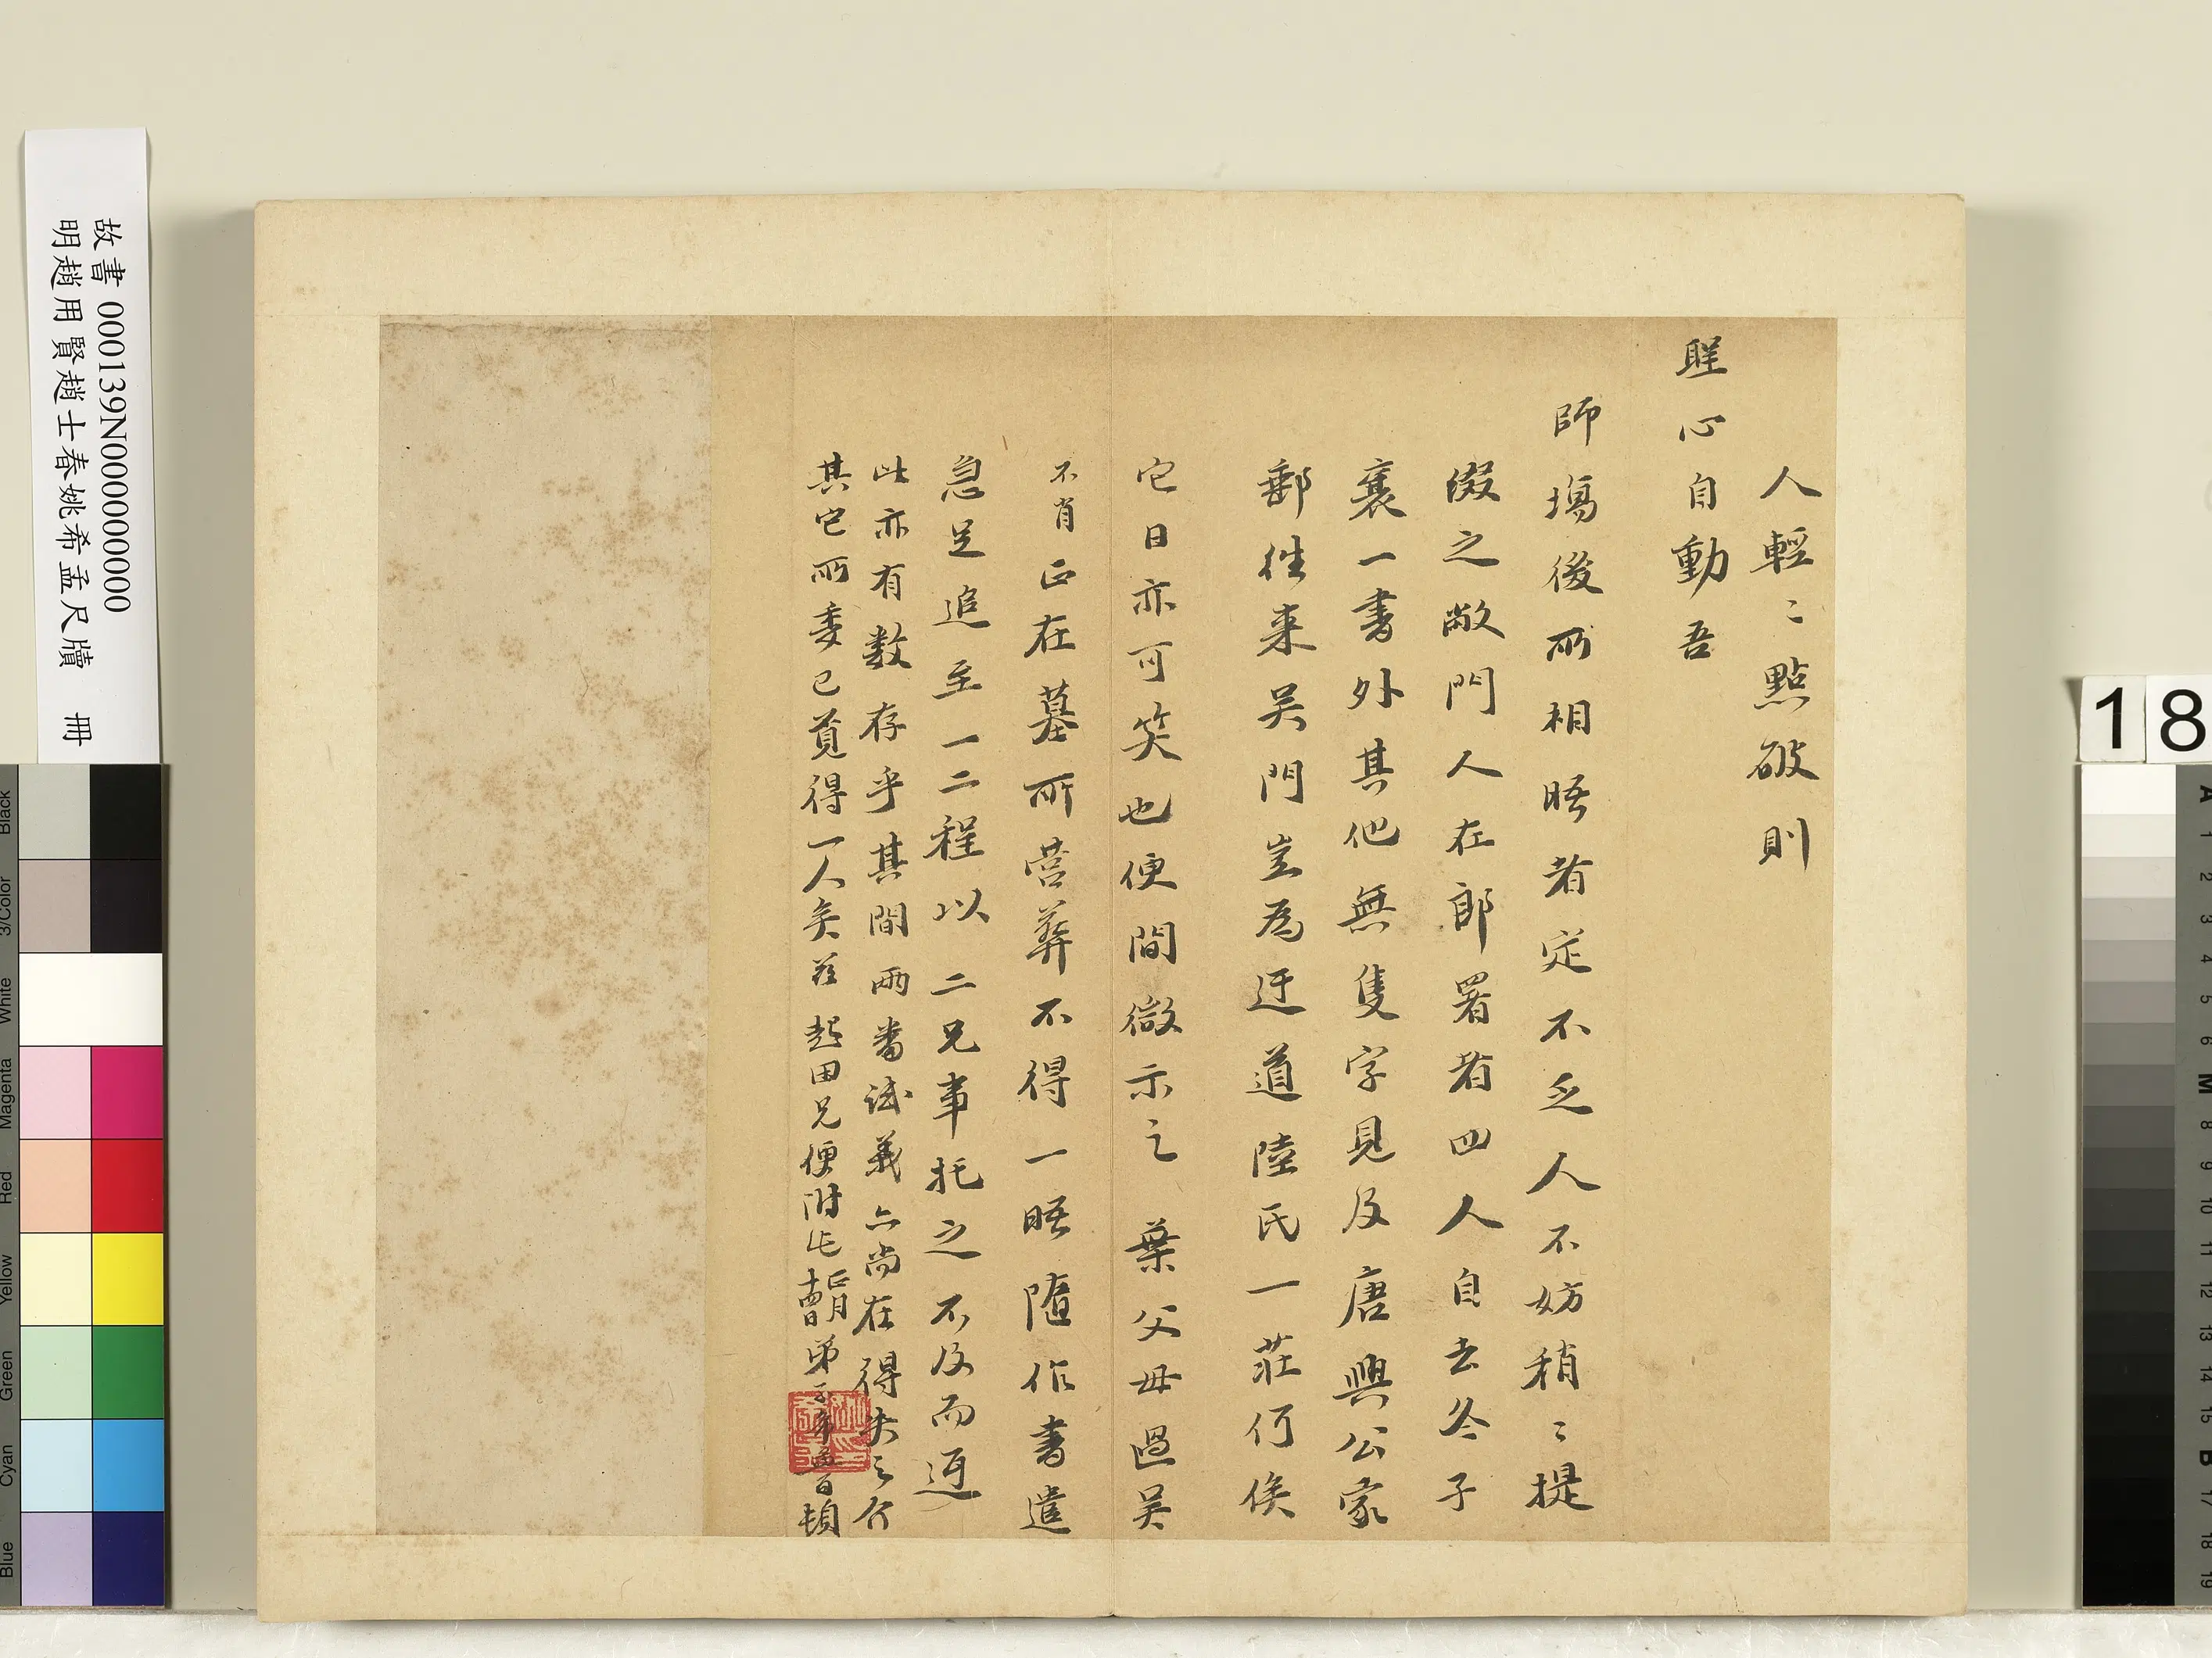 人輕〻點破則
聖心自動吾
師場後所相晤者定不乏人不妨稍〻提
掇之敝門人在郎署者四人自去冬子
襄一書外其他無隻字見及唐興公家
郵往来吴門豈為迂道陸氏一莊何俟
它日亦可笑也便間微示之葉父母過吴
不肖正在墓所营葬不得一晤随作書遣
急足追至一二程以二兄事托之不及而返
此亦有数存乎其間兩番試義亦尚在得失之介
其它所委已覓得一人矣兹起田兄便附此
正月十四日弟
頓
故書 000139N000000000
明趙用賢趙士春姚希孟尺牘 冊
18
Black
3/Color
White
Magenta
Red
Yellow
Green
Cyan
Blue
A
1
2
3
4
5
6
M
8
9
10
11
12
13
14
15
B
17
18
19